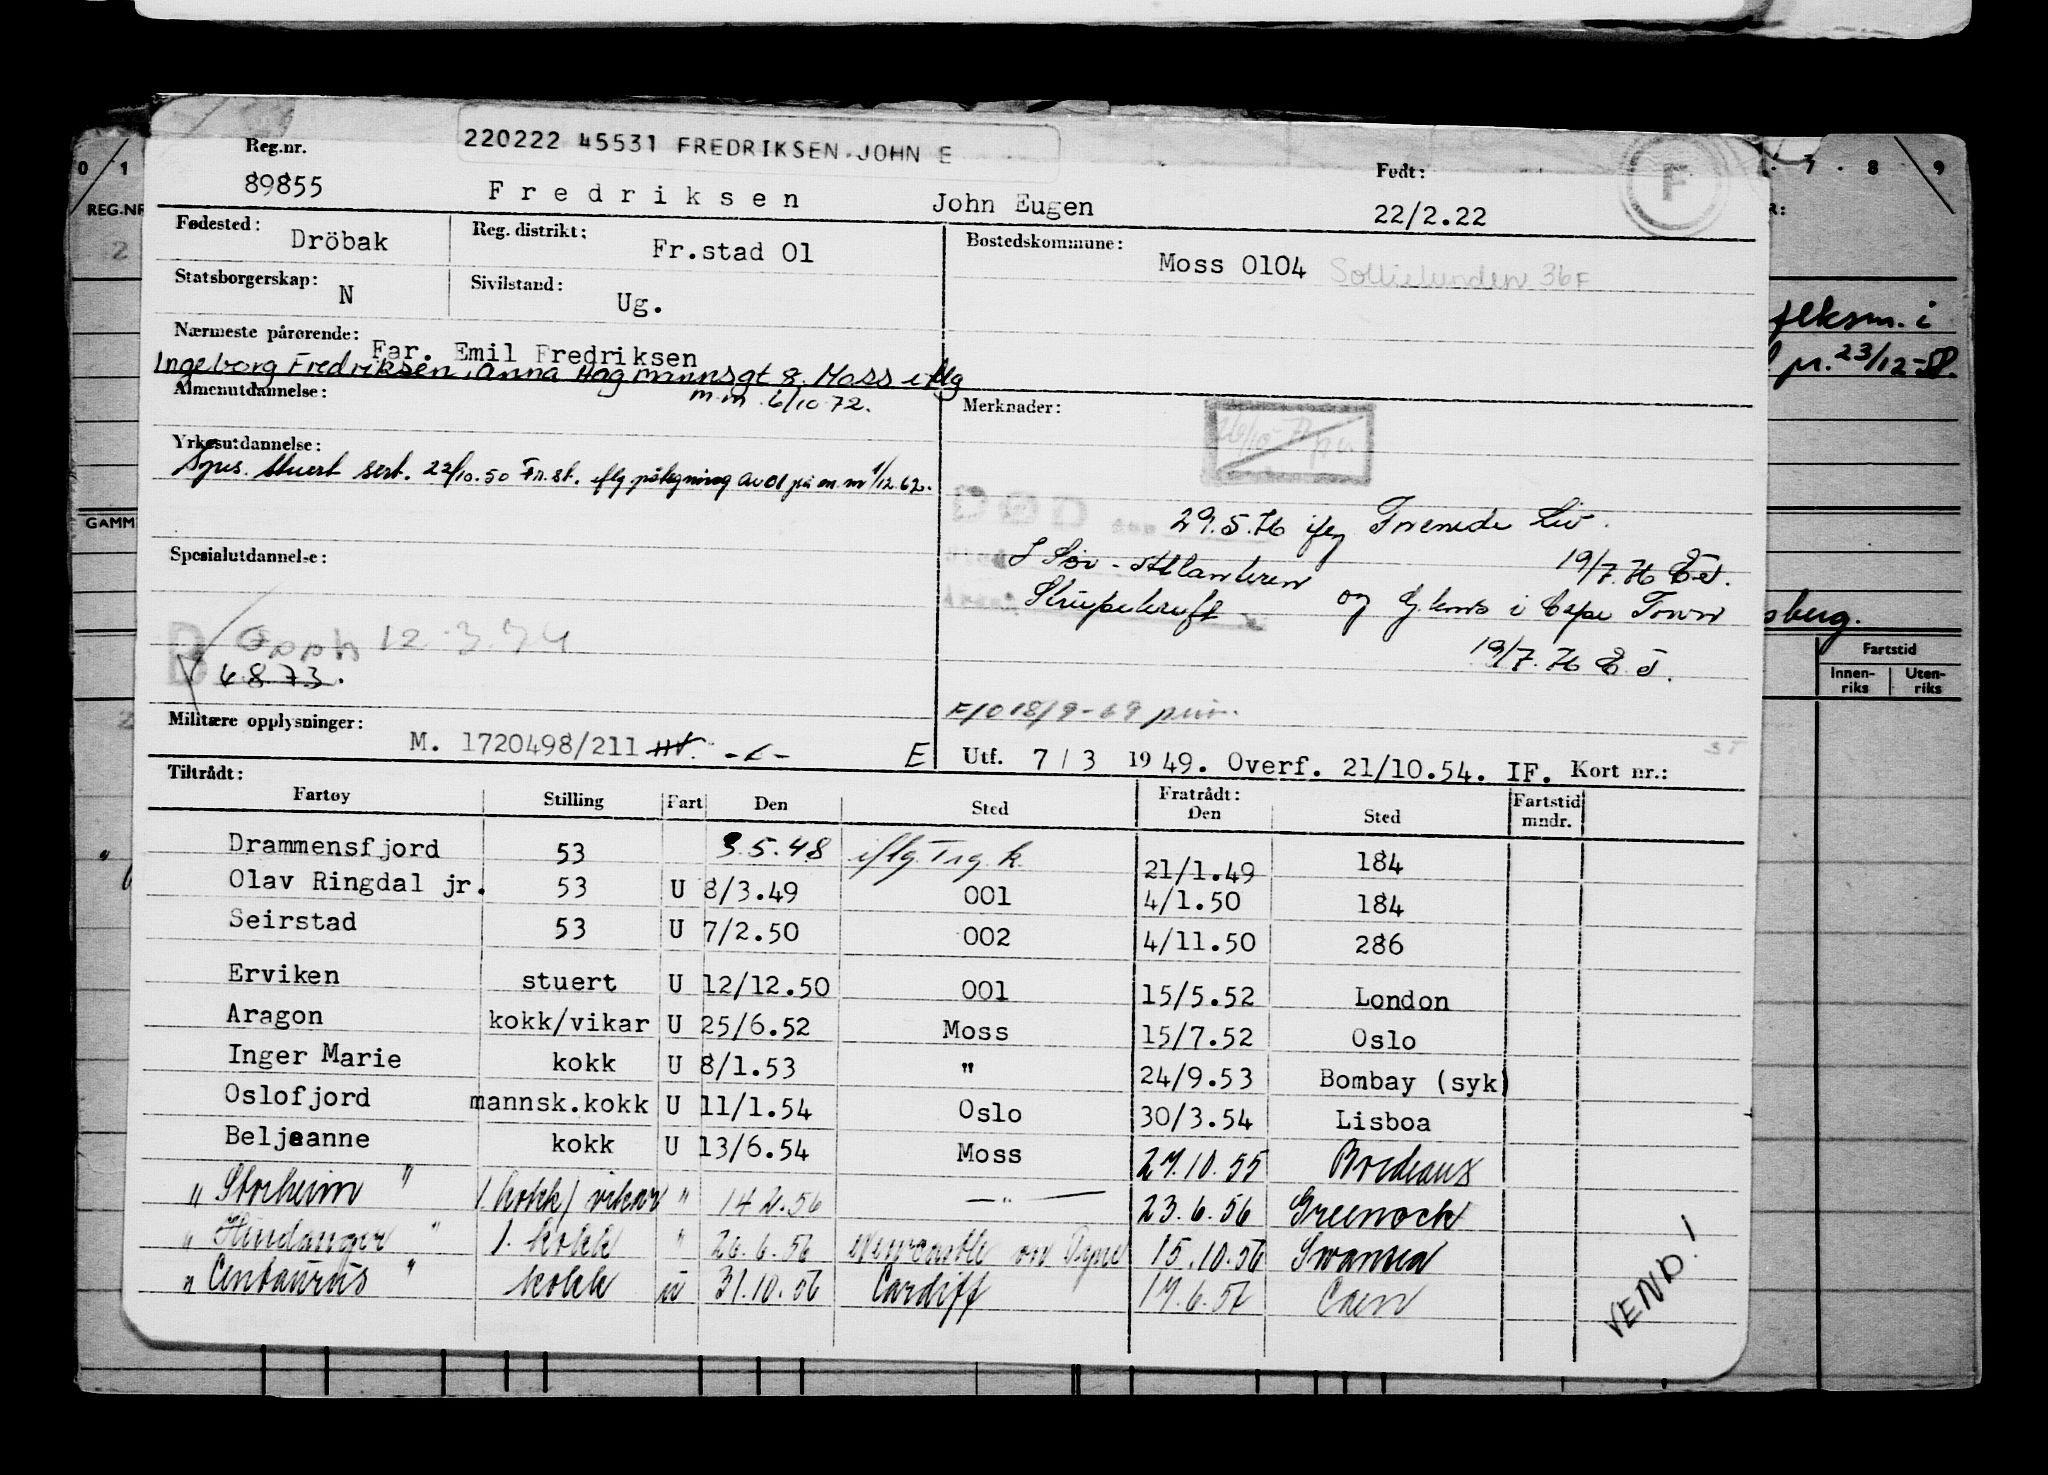 220222 45531 FREDRIKSEN JOHN E
Reg.nr. Født: F
89855 Fredriksen John Eugen 22/2.22
Fødested: Dröbak Reg. distrikt: Fr.stad 01 Bostedskommune: Moss 0104 Sollielunden 36F
Statsborgerskap: N Sivilstand: Ug.
Nærmeste pårørende: Far. Emil Fredriksen
Ingeborg Fredriksen, Anna Hagmannsgt 8. Moss iflg
m.m 6/10 72.
Almenutdannelse: Merknader:
Yrkesutdannelse:
stuert sert. 22/10.50 Fr.st. iflg påtegning av 01 på m m 1/12 62.
DØD 29.5.76 iflg Livr.
19/7.76 E.T.
I Sør-Atlanteren
Strupekreft og i Cape Town
19/7.76 E.T.
Spesialutdannelse:
Opph 12.3.74
B 6873.
F/O 18/9-69
Militære opplysninger: M. 1720498/211 -c- E
Utf. 7/3 1949. Overf. 21/10.54. IF. Kort nr.:
Tiltrådt: Fratrådt:
Fartøy Stilling Fart Den Sted Den Sted Fartstid mndr.
Drammensfjord 53 3.5.48 iflg. Trg.k. 21/1.49 184
Olav Ringdal jr. 53 U 8/3.49 001 4/1.50 184
Seirstad 53 U 7/2.50 002 4/11.50 286
Erviken stuert U 12/12.50 001 15/5.52 London
Aragon kokk/vikar U 25/6.52 Moss 15/7.52 Oslo
Inger Marie kokk U 8/1.53 " 24/9.53 Bombay (syk)
Oslofjord mannsk.kokk U 11/1.54 Oslo 30/3.54 Lisboa
Beljeanne kokk U 13/6.54 Moss 27.10.55 Bordeaux
" Storheim " 1.kokk/vikar " 14.2.56 —"— 23.6.56 Greenock
" Hindanger " 1. kokk " 26.6.56 Newcastle on Tyne 15.10.56 Swansea
" Centaurus " kokk u 31.10.56 Cardiff 17.6.57 Caen
VEND!
0 1 7 8 9
REG.NR
GAMM
fleksm. i
pr. 23/12-58.
sberg.
Fartstid
Innen-riks Uten-riks